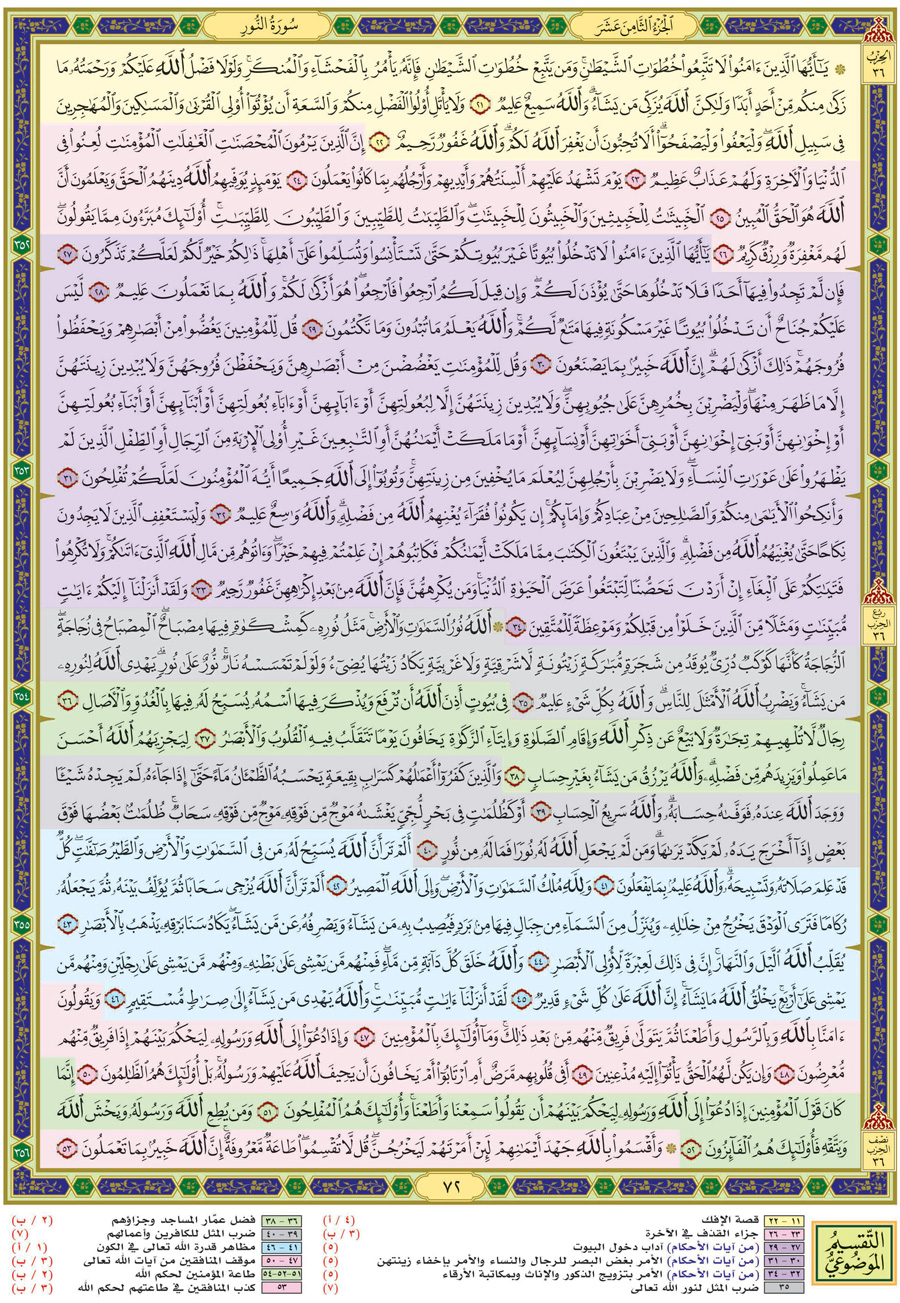 الجُزْءُ الثَّامِنَ عَشَرَ
سُورَةُ النُّورِ
الحِزْب ٣٦
۞ يَٰٓأَيُّهَا ٱلَّذِينَ ءَامَنُوا۟ لَا تَتَّبِعُوا۟ خُطُوَٰتِ ٱلشَّيْطَٰنِ ۚ وَمَن يَتَّبِعْ خُطُوَٰتِ ٱلشَّيْطَٰنِ فَإِنَّهُۥ يَأْمُرُ بِٱلْفَحْشَآءِ وَٱلْمُنكَرِ ۚ وَلَوْلَا فَضْلُ ٱللَّهِ عَلَيْكُمْ وَرَحْمَتُهُۥ مَا
زَكَىٰ مِنكُم مِّنْ أَحَدٍ أَبَدًا وَلَٰكِنَّ ٱللَّهَ يُزَكِّى مَن يَشَآءُ ۗ وَٱللَّهُ سَمِيعٌ عَلِيمٌ ٢١ وَلَا يَأْتَلِ أُو۟لُوا۟ ٱلْفَضْلِ مِنكُمْ وَٱلسَّعَةِ أَن يُؤْتُوٓا۟ أُو۟لِى ٱلْقُرْبَىٰ وَٱلْمَسَٰكِينَ وَٱلْمُهَٰجِرِينَ
فِى سَبِيلِ ٱللَّهِ ۖ وَلْيَعْفُوا۟ وَلْيَصْفَحُوٓا۟ ۗ أَلَا تُحِبُّونَ أَن يَغْفِرَ ٱللَّهُ لَكُمْ ۗ وَٱللَّهُ غَفُورٌ رَّحِيمٌ ٢٢ إِنَّ ٱلَّذِينَ يَرْمُونَ ٱلْمُحْصَنَٰتِ ٱلْغَٰفِلَٰتِ ٱلْمُؤْمِنَٰتِ لُعِنُوا۟ فِى
ٱلدُّنْيَا وَٱلْءَاخِرَةِ وَلَهُمْ عَذَابٌ عَظِيمٌ ٢٣ يَوْمَ تَشْهَدُ عَلَيْهِمْ أَلْسِنَتُهُمْ وَأَيْدِيهِمْ وَأَرْجُلُهُم بِمَا كَانُوا۟ يَعْمَلُونَ ٢٤ يَوْمَئِذٍ يُوَفِّيهِمُ ٱللَّهُ دِينَهُمُ ٱلْحَقَّ وَيَعْلَمُونَ أَنَّ
ٱللَّهَ هُوَ ٱلْحَقُّ ٱلْمُبِينُ ٢٥ ٱلْخَبِيثَٰتُ لِلْخَبِيثِينَ وَٱلْخَبِيثُونَ لِلْخَبِيثَٰتِ ۖ وَٱلطَّيِّبَٰتُ لِلطَّيِّبِينَ وَٱلطَّيِّبُونَ لِلطَّيِّبَٰتِ ۚ أُو۟لَٰٓئِكَ مُبَرَّءُونَ مِمَّا يَقُولُونَ ۖ
لَهُم مَّغْفِرَةٌ وَرِزْقٌ كَرِيمٌ ٢٦ يَٰٓأَيُّهَا ٱلَّذِينَ ءَامَنُوا۟ لَا تَدْخُلُوا۟ بُيُوتًا غَيْرَ بُيُوتِكُمْ حَتَّىٰ تَسْتَأْنِسُوا۟ وَتُسَلِّمُوا۟ عَلَىٰٓ أَهْلِهَا ۚ ذَٰلِكُمْ خَيْرٌ لَّكُمْ لَعَلَّكُمْ تَذَكَّرُونَ ٢٧
٣٥٢
فَإِن لَّمْ تَجِدُوا۟ فِيهَآ أَحَدًا فَلَا تَدْخُلُوهَا حَتَّىٰ يُؤْذَنَ لَكُمْ ۖ وَإِن قِيلَ لَكُمُ ٱرْجِعُوا۟ فَٱرْجِعُوا۟ ۖ هُوَ أَزْكَىٰ لَكُمْ ۚ وَٱللَّهُ بِمَا تَعْمَلُونَ عَلِيمٌ ٢٨ لَّيْسَ
عَلَيْكُمْ جُنَاحٌ أَن تَدْخُلُوا۟ بُيُوتًا غَيْرَ مَسْكُونَةٍ فِيهَا مَتَٰعٌ لَّكُمْ ۚ وَٱللَّهُ يَعْلَمُ مَا تُبْدُونَ وَمَا تَكْتُمُونَ ٢٩ قُل لِّلْمُؤْمِنِينَ يَغُضُّوا۟ مِنْ أَبْصَٰرِهِمْ وَيَحْفَظُوا۟
فُرُوجَهُمْ ۚ ذَٰلِكَ أَزْكَىٰ لَهُمْ ۗ إِنَّ ٱللَّهَ خَبِيرٌۢ بِمَا يَصْنَعُونَ ٣٠ وَقُل لِّلْمُؤْمِنَٰتِ يَغْضُضْنَ مِنْ أَبْصَٰرِهِنَّ وَيَحْفَظْنَ فُرُوجَهُنَّ وَلَا يُبْدِينَ زِينَتَهُنَّ
إِلَّا مَا ظَهَرَ مِنْهَا ۖ وَلْيَضْرِبْنَ بِخُمُرِهِنَّ عَلَىٰ جُيُوبِهِنَّ ۖ وَلَا يُبْدِينَ زِينَتَهُنَّ إِلَّا لِبُعُولَتِهِنَّ أَوْ ءَابَآئِهِنَّ أَوْ ءَابَآءِ بُعُولَتِهِنَّ أَوْ أَبْنَآئِهِنَّ أَوْ أَبْنَآءِ بُعُولَتِهِنَّ
أَوْ إِخْوَٰنِهِنَّ أَوْ بَنِىٓ إِخْوَٰنِهِنَّ أَوْ بَنِىٓ أَخَوَٰتِهِنَّ أَوْ نِسَآئِهِنَّ أَوْ مَا مَلَكَتْ أَيْمَٰنُهُنَّ أَوِ ٱلتَّٰبِعِينَ غَيْرِ أُو۟لِى ٱلْإِرْبَةِ مِنَ ٱلرِّجَالِ أَوِ ٱلطِّفْلِ ٱلَّذِينَ لَمْ
٣٥٣
يَظْهَرُوا۟ عَلَىٰ عَوْرَٰتِ ٱلنِّسَآءِ ۖ وَلَا يَضْرِبْنَ بِأَرْجُلِهِنَّ لِيُعْلَمَ مَا يُخْفِينَ مِن زِينَتِهِنَّ ۚ وَتُوبُوٓا۟ إِلَى ٱللَّهِ جَمِيعًا أَيُّهَ ٱلْمُؤْمِنُونَ لَعَلَّكُمْ تُفْلِحُونَ ٣١
وَأَنكِحُوا۟ ٱلْأَيَٰمَىٰ مِنكُمْ وَٱلصَّٰلِحِينَ مِنْ عِبَادِكُمْ وَإِمَآئِكُمْ ۚ إِن يَكُونُوا۟ فُقَرَآءَ يُغْنِهِمُ ٱللَّهُ مِن فَضْلِهِۦ ۗ وَٱللَّهُ وَٰسِعٌ عَلِيمٌ ٣٢ وَلْيَسْتَعْفِفِ ٱلَّذِينَ لَا يَجِدُونَ
نِكَاحًا حَتَّىٰ يُغْنِيَهُمُ ٱللَّهُ مِن فَضْلِهِۦ ۗ وَٱلَّذِينَ يَبْتَغُونَ ٱلْكِتَٰبَ مِمَّا مَلَكَتْ أَيْمَٰنُكُمْ فَكَاتِبُوهُمْ إِنْ عَلِمْتُمْ فِيهِمْ خَيْرًا ۖ وَءَاتُوهُم مِّن مَّالِ ٱللَّهِ ٱلَّذِىٓ ءَاتَىٰكُمْ ۚ وَلَا تُكْرِهُوا۟
فَتَيَٰتِكُمْ عَلَى ٱلْبِغَآءِ إِنْ أَرَدْنَ تَحَصُّنًا لِّتَبْتَغُوا۟ عَرَضَ ٱلْحَيَوٰةِ ٱلدُّنْيَا ۚ وَمَن يُكْرِههُّنَّ فَإِنَّ ٱللَّهَ مِنۢ بَعْدِ إِكْرَٰهِهِنَّ غَفُورٌ رَّحِيمٌ ٣٣ وَلَقَدْ أَنزَلْنَآ إِلَيْكُمْ ءَايَٰتٍ
رُبع الحِزب ٣٦
مُّبَيِّنَٰتٍ وَمَثَلًا مِّنَ ٱلَّذِينَ خَلَوْا۟ مِن قَبْلِكُمْ وَمَوْعِظَةً لِّلْمُتَّقِينَ ٣٤ ۞ ٱللَّهُ نُورُ ٱلسَّمَٰوَٰتِ وَٱلْأَرْضِ ۚ مَثَلُ نُورِهِۦ كَمِشْكَوٰةٍ فِيهَا مِصْبَاحٌ ۖ ٱلْمِصْبَاحُ فِى زُجَاجَةٍ ۖ
ٱلزُّجَاجَةُ كَأَنَّهَا كَوْكَبٌ دُرِّىٌّ يُوقَدُ مِن شَجَرَةٍ مُّبَٰرَكَةٍ زَيْتُونَةٍ لَّا شَرْقِيَّةٍ وَلَا غَرْبِيَّةٍ يَكَادُ زَيْتُهَا يُضِىٓءُ وَلَوْ لَمْ تَمْسَسْهُ نَارٌ ۚ نُّورٌ عَلَىٰ نُورٍ ۗ يَهْدِى ٱللَّهُ لِنُورِهِۦ
مَن يَشَآءُ ۚ وَيَضْرِبُ ٱللَّهُ ٱلْأَمْثَٰلَ لِلنَّاسِ ۗ وَٱللَّهُ بِكُلِّ شَىْءٍ عَلِيمٌ ٣٥ فِى بُيُوتٍ أَذِنَ ٱللَّهُ أَن تُرْفَعَ وَيُذْكَرَ فِيهَا ٱسْمُهُۥ يُسَبِّحُ لَهُۥ فِيهَا بِٱلْغُدُوِّ وَٱلْءَاصَالِ ٣٦
٣٥٤
رِجَالٌ لَّا تُلْهِيهِمْ تِجَٰرَةٌ وَلَا بَيْعٌ عَن ذِكْرِ ٱللَّهِ وَإِقَامِ ٱلصَّلَوٰةِ وَإِيتَآءِ ٱلزَّكَوٰةِ ۙ يَخَافُونَ يَوْمًا تَتَقَلَّبُ فِيهِ ٱلْقُلُوبُ وَٱلْأَبْصَٰرُ ٣٧ لِيَجْزِيَهُمُ ٱللَّهُ أَحْسَنَ
مَا عَمِلُوا۟ وَيَزِيدَهُم مِّن فَضْلِهِۦ ۗ وَٱللَّهُ يَرْزُقُ مَن يَشَآءُ بِغَيْرِ حِسَابٍ ٣٨ وَٱلَّذِينَ كَفَرُوٓا۟ أَعْمَٰلُهُمْ كَسَرَابٍۭ بِقِيعَةٍ يَحْسَبُهُ ٱلظَّمْـَٔانُ مَآءً حَتَّىٰٓ إِذَا جَآءَهُۥ لَمْ يَجِدْهُ شَيْـًٔا
وَوَجَدَ ٱللَّهَ عِندَهُۥ فَوَفَّىٰهُ حِسَابَهُۥ ۗ وَٱللَّهُ سَرِيعُ ٱلْحِسَابِ ٣٩ أَوْ كَظُلُمَٰتٍ فِى بَحْرٍ لُّجِّىٍّ يَغْشَىٰهُ مَوْجٌ مِّن فَوْقِهِۦ مَوْجٌ مِّن فَوْقِهِۦ سَحَابٌ ۚ ظُلُمَٰتٌۢ بَعْضُهَا فَوْقَ
بَعْضٍ إِذَآ أَخْرَجَ يَدَهُۥ لَمْ يَكَدْ يَرَىٰهَا ۗ وَمَن لَّمْ يَجْعَلِ ٱللَّهُ لَهُۥ نُورًا فَمَا لَهُۥ مِن نُّورٍ ٤٠ أَلَمْ تَرَ أَنَّ ٱللَّهَ يُسَبِّحُ لَهُۥ مَن فِى ٱلسَّمَٰوَٰتِ وَٱلْأَرْضِ وَٱلطَّيْرُ صَٰٓفَّٰتٍ ۖ كُلٌّ
قَدْ عَلِمَ صَلَاتَهُۥ وَتَسْبِيحَهُۥ ۗ وَٱللَّهُ عَلِيمٌۢ بِمَا يَفْعَلُونَ ٤١ وَلِلَّهِ مُلْكُ ٱلسَّمَٰوَٰتِ وَٱلْأَرْضِ ۖ وَإِلَى ٱللَّهِ ٱلْمَصِيرُ ٤٢ أَلَمْ تَرَ أَنَّ ٱللَّهَ يُزْجِى سَحَابًا ثُمَّ يُؤَلِّفُ بَيْنَهُۥ ثُمَّ يَجْعَلُهُۥ
رُكَامًا فَتَرَى ٱلْوَدْقَ يَخْرُجُ مِنْ خِلَٰلِهِۦ وَيُنَزِّلُ مِنَ ٱلسَّمَآءِ مِن جِبَالٍ فِيهَا مِنۢ بَرَدٍ فَيُصِيبُ بِهِۦ مَن يَشَآءُ وَيَصْرِفُهُۥ عَن مَّن يَشَآءُ ۖ يَكَادُ سَنَا بَرْقِهِۦ يَذْهَبُ بِٱلْأَبْصَٰرِ ٤٣
٣٥٥
يُقَلِّبُ ٱللَّهُ ٱلَّيْلَ وَٱلنَّهَارَ ۚ إِنَّ فِى ذَٰلِكَ لَعِبْرَةً لِّأُو۟لِى ٱلْأَبْصَٰرِ ٤٤ وَٱللَّهُ خَلَقَ كُلَّ دَآبَّةٍ مِّن مَّآءٍ ۖ فَمِنْهُم مَّن يَمْشِى عَلَىٰ بَطْنِهِۦ وَمِنْهُم مَّن يَمْشِى عَلَىٰ رِجْلَيْنِ وَمِنْهُم مَّن
يَمْشِى عَلَىٰٓ أَرْبَعٍ ۚ يَخْلُقُ ٱللَّهُ مَا يَشَآءُ ۚ إِنَّ ٱللَّهَ عَلَىٰ كُلِّ شَىْءٍ قَدِيرٌ ٤٥ لَّقَدْ أَنزَلْنَآ ءَايَٰتٍ مُّبَيِّنَٰتٍ ۚ وَٱللَّهُ يَهْدِى مَن يَشَآءُ إِلَىٰ صِرَٰطٍ مُّسْتَقِيمٍ ٤٦ وَيَقُولُونَ
ءَامَنَّا بِٱللَّهِ وَبِٱلرَّسُولِ وَأَطَعْنَا ثُمَّ يَتَوَلَّىٰ فَرِيقٌ مِّنْهُم مِّنۢ بَعْدِ ذَٰلِكَ ۚ وَمَآ أُو۟لَٰٓئِكَ بِٱلْمُؤْمِنِينَ ٤٧ وَإِذَا دُعُوٓا۟ إِلَى ٱللَّهِ وَرَسُولِهِۦ لِيَحْكُمَ بَيْنَهُمْ إِذَا فَرِيقٌ مِّنْهُم
مُّعْرِضُونَ ٤٨ وَإِن يَكُن لَّهُمُ ٱلْحَقُّ يَأْتُوٓا۟ إِلَيْهِ مُذْعِنِينَ ٤٩ أَفِى قُلُوبِهِم مَّرَضٌ أَمِ ٱرْتَابُوٓا۟ أَمْ يَخَافُونَ أَن يَحِيفَ ٱللَّهُ عَلَيْهِمْ وَرَسُولُهُۥ ۚ بَلْ أُو۟لَٰٓئِكَ هُمُ ٱلظَّٰلِمُونَ ٥٠ إِنَّمَا
كَانَ قَوْلَ ٱلْمُؤْمِنِينَ إِذَا دُعُوٓا۟ إِلَى ٱللَّهِ وَرَسُولِهِۦ لِيَحْكُمَ بَيْنَهُمْ أَن يَقُولُوا۟ سَمِعْنَا وَأَطَعْنَا ۚ وَأُو۟لَٰٓئِكَ هُمُ ٱلْمُفْلِحُونَ ٥١ وَمَن يُطِعِ ٱللَّهَ وَرَسُولَهُۥ وَيَخْشَ ٱللَّهَ
نصف الحِزب ٣٦
وَيَتَّقْهِ فَأُو۟لَٰٓئِكَ هُمُ ٱلْفَآئِزُونَ ٥٢ ۞ وَأَقْسَمُوا۟ بِٱللَّهِ جَهْدَ أَيْمَٰنِهِمْ لَئِنْ أَمَرْتَهُمْ لَيَخْرُجُنَّ ۖ قُل لَّا تُقْسِمُوا۟ ۖ طَاعَةٌ مَّعْرُوفَةٌ ۚ إِنَّ ٱللَّهَ خَبِيرٌۢ بِمَا تَعْمَلُونَ ٥٣
٣٥٦
٧٢
التَّقسِيمُ المَوضُوعِيُّ
١١ - ٢٢ قصة الإفك (٤ / أ)
٢٣ - ٢٦ جزاء القذف في الآخرة (٣ / ب)
٢٧ - ٢٩ (من آيات الأحكام) آداب دخول البيوت (٥)
٣٠ - ٣١ (من آيات الأحكام) الأمر بغض البصر للرجال والنساء والأمر بإخفاء زينتهن (٥)
٣٢ - ٣٤ (من آيات الأحكام) الأمر بتزويج الذكور والإناث وبمكاتبة الأرقاء (٥)
٣٥ ضرب المثل لنور الله تعالى (٧)
٣٦ - ٣٨ فضل عمّار المساجد وجزاؤهم (٢ / ب)
٣٩ - ٤٠ ضرب المثل للكافرين وأعمالهم (٧)
٤١ - ٤٦ مظاهر قدرة الله تعالى في الكون (١ / أ)
٤٧ - ٥٠ موقف المنافقين من آيات الله تعالى (٣ / ب)
٥١-٥٢-٥٤ طاعة المؤمنين لحكم الله (٢ / ب)
٥٣ كذب المنافقين في طاعتهم لحكم الله (٣ / ب)